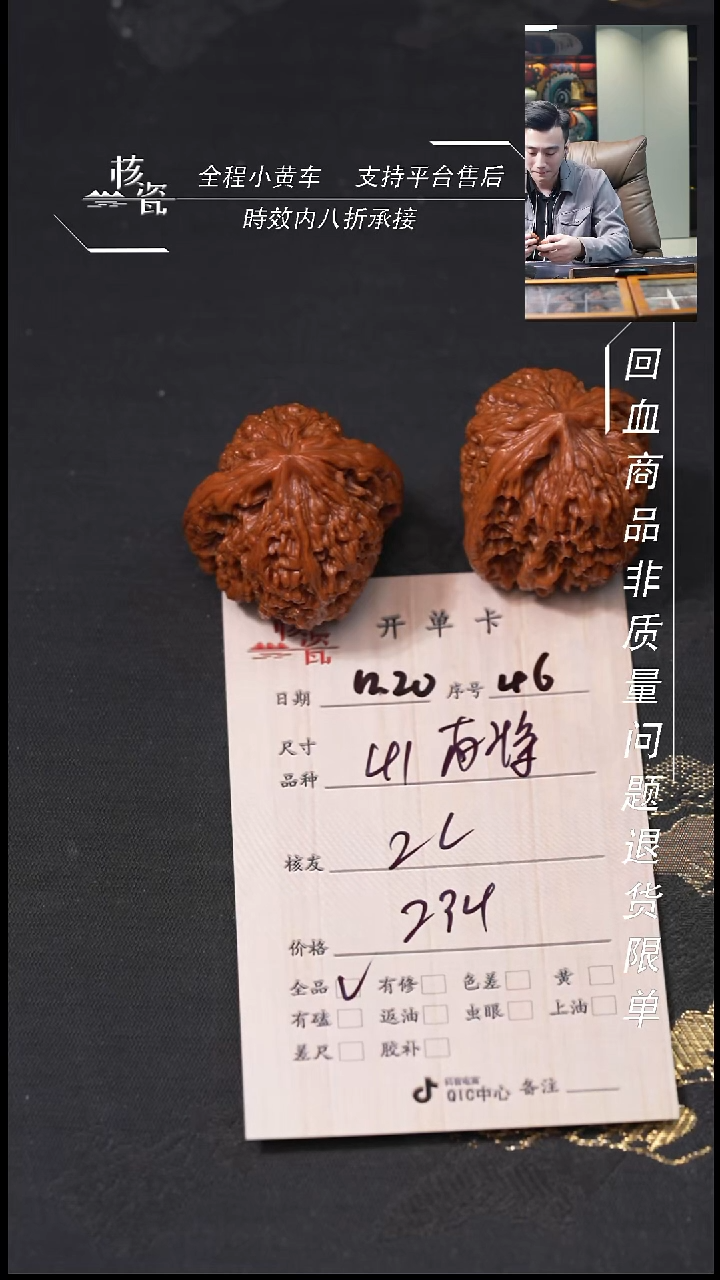 核瓷
全程小黄车 支持平台售后
時效内八折承接
回血商品非质量问题退货限单
核瓷
开单卡
日期 12.20 序号 46
尺寸
品种 41 南将
核友 2L
价格 234
全品 √ 有修 色差 黄
有磕 返油 虫眼 上油
差尺 胶补
QIC中心 备注